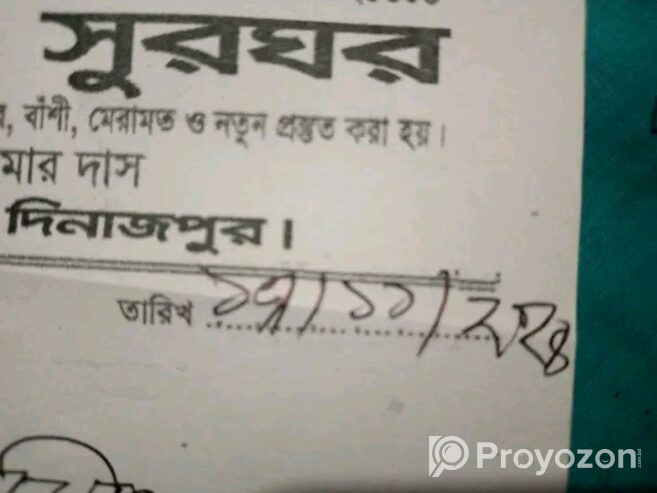 সুরঘর
বাঁশী, মেরামত ও নতুন প্রস্তুত করা হয়।
মার দাস
দিনাজপুর।
তারিখ
Proyozon